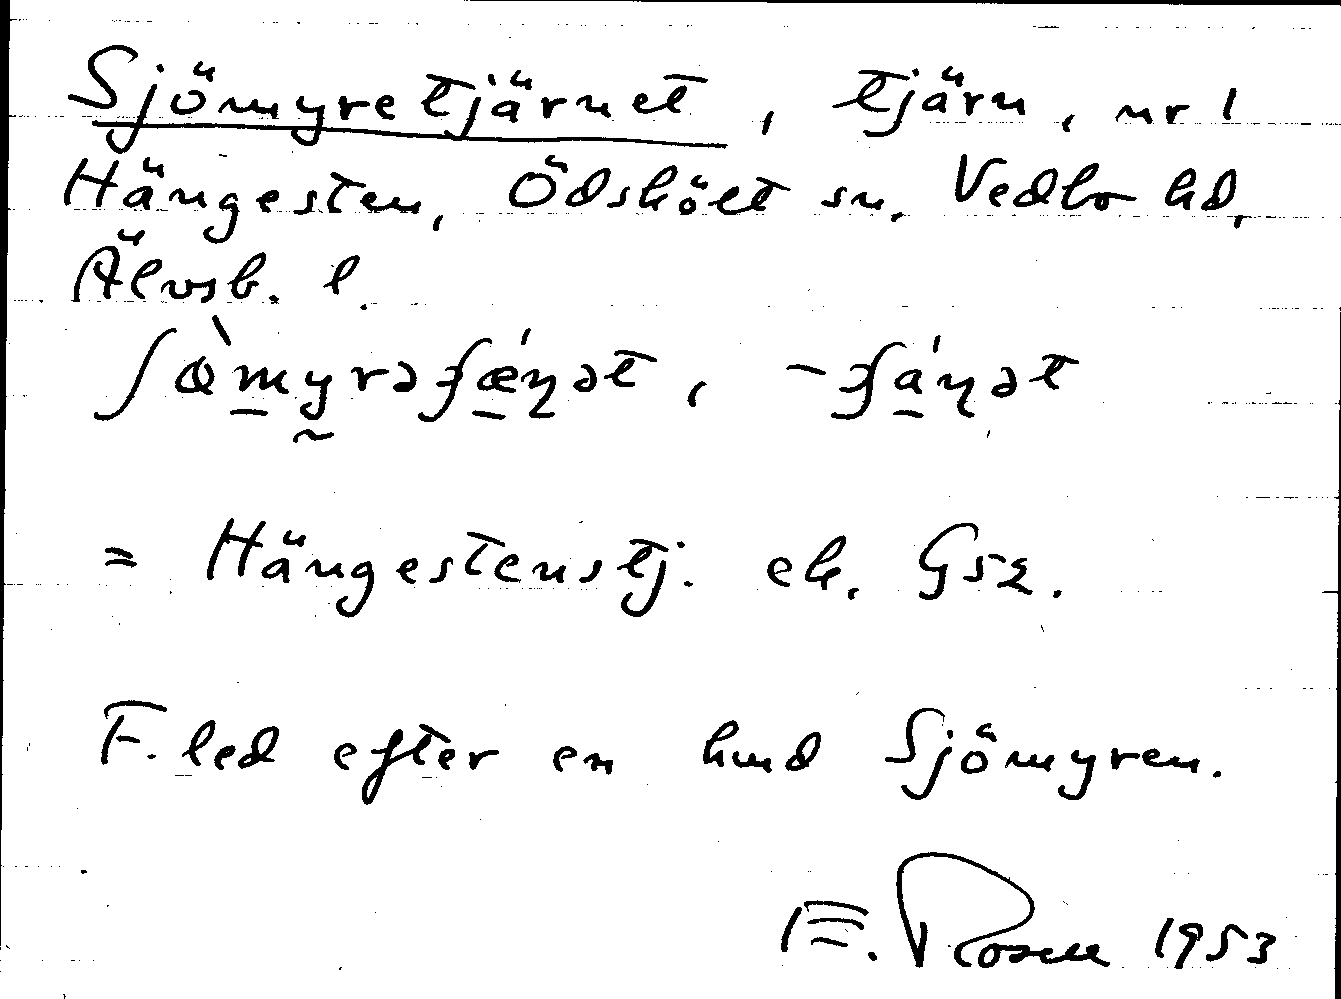 Sjömyretjärnet, tjärn, nr 1
Hängesten, Ödskölt sn, Vedbo hd,
Älvsb. l.
= Hängestenstj. ek. G52.
F. led efter en hmd Sjömyren.
E. Rosell 1953